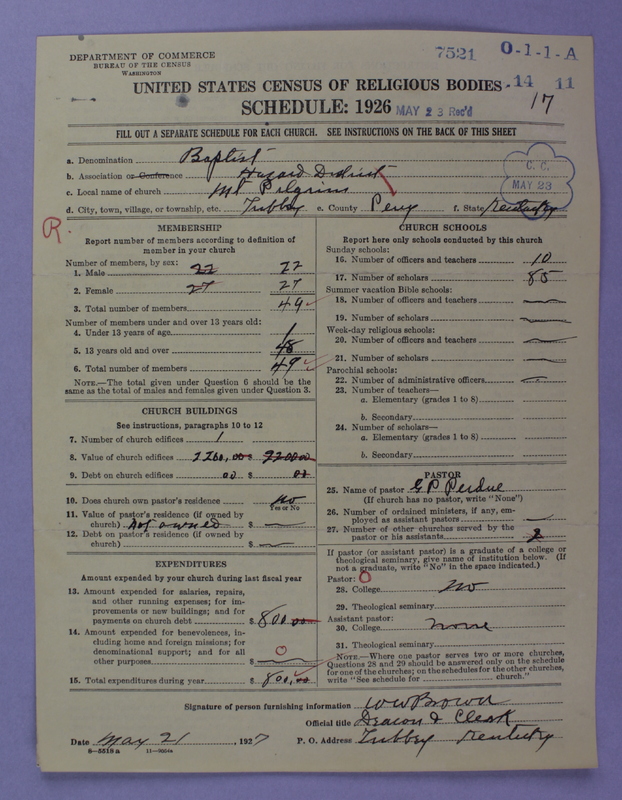 DEPARTMENT OF COMMERCE
BUREAU OF THE CENSUS
WASHINGTON
7521 O-1-1-A
UNITED STATES CENSUS OF RELIGIOUS BODIES 14 11
SCHEDULE: 1926 MAY 23 Rec'd 17
FILL OUT A SEPARATE SCHEDULE FOR EACH CHURCH. SEE INSTRUCTIONS ON THE BACK OF THIS SHEET
a. Denomination Baptist
b. Association or Conference Hazard District
c. Local name of church Mt Pilgrim
C. C. MAY 23
d. City, town, village, or township, etc. Tribbey e. County Perry f. State Kentucky
R
MEMBERSHIP
Report number of members according to definition of
member in your church
Number of members, by sex:
1. Male 22 22
2. Female 27 27
3. Total number of members 49
Number of members under and over 13 years old:
4. Under 13 years of age 1
5. 13 years old and over 48
6. Total number of members 49
NOTE.—The total given under Question 6 should be
same as the total of males and females given under Question 3.
CHURCH BUILDINGS
See instructions, paragraphs 10 to 12
7. Number of church edifices 1
8. Value of church edifices
9. Debt on church edifices 00 $ 00
10. Does church own pastor's residence No
Yes or No
11. Value of pastor's residence (if owned by
church) not owned $
12. Debt on pastor's residence (if owned by
church) $
EXPENDITURES
Amount expended by your church during last fiscal year
13. Amount expended for salaries, repairs,
and other running expenses; for im-
provements or new buildings; and for
payments on church debt $ 800 00
14. Amount expended for benevolences, in-
cluding home and foreign missions; for
denominational support; and for all
other purposes $ 0
15. Total expenditures during year $ 800,00
CHURCH SCHOOLS
Report here only schools conducted by this church
Sunday schools:
16. Number of officers and teachers 10
17. Number of scholars 85
Summer vacation Bible schools:
18. Number of officers and teachers
19. Number of scholars
Week-day religious schools:
20. Number of officers and teachers
21. Number of scholars
Parochial schools:
22. Number of administrative officers
23. Number of teachers—
a. Elementary (grades 1 to 8)
b. Secondary
24. Number of scholars—
a. Elementary (grades 1 to 8)
b. Secondary
PASTOR
25. Name of pastor G P Perdue
(If church has no pastor, write "None")
26. Number of ordained ministers, if any, em-
ployed as assistant pastors
27. Number of other churches served by the
pastor or his assistants 2
If pastor (or assistant pastor) is a graduate of a college or
theological seminary, give name of institution below. (If
not a graduate, write "No" in the space indicated.)
Pastor: O
28. College No
29. Theological seminary
Assistant pastor:
30. College None
31. Theological seminary
NOTE.—Where one pastor serves two or more churches,
Questions 28 and 29 should be answered only on the schedule
for one of the churches; on the schedules for the other churches,
write "See schedule for church."
Signature of person furnishing information W W Brown
Official title Deacon & Clerk
Date May 21, 1927 P. O. Address Tribbey Kentucky
8-5518 a